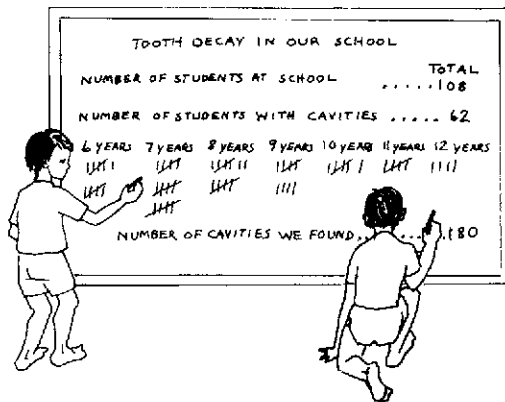 TOOTH DECAY IN OUR SCHOOL
TOTAL
NUMBER OF STUDENTS AT SCHOOL ..... 108
NUMBER OF STUDENTS WITH CAVITIES ..... 62
6 YEARS 7 YEARS 8 YEARS 9 YEARS 10 YEARS 11 YEARS 12 YEARS
NUMBER OF CAVITIES WE FOUND.......... 180